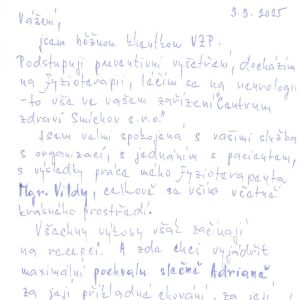 3.3.2025
Vážení,
jsem běžnou klientkou VZP.
Podstupuji preventivní vyšetření, docházím
na fyzioterapii, léčím se na neurologii
- to vše ve vašem zařízení "Centrum
zdraví Smíchov s.r.o."
Jsem velmi spokojená s vašimi služba
s organizací, s jednáním s pacientem,
s výsledky práce mého fyzioterapeuta
Mgr. Vildy, celkově se vším včetně
krásného prostředí.
Všechny výkony však začínají
na recepci. A zde chci vyjádřit
maximální pochvalu slečně Adrianě
za její příkladné chování, za její